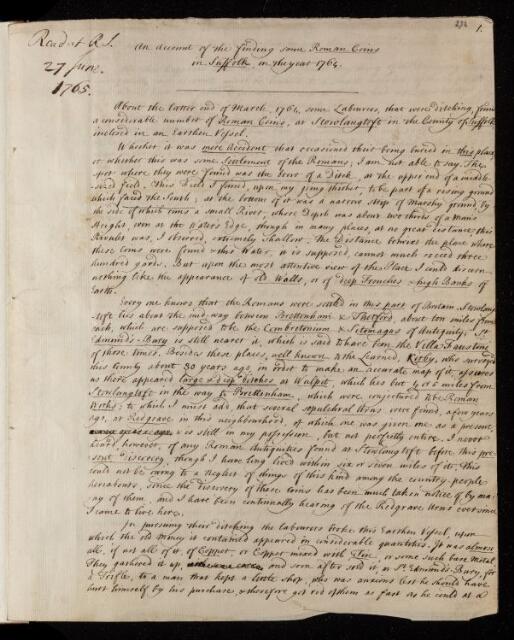 Read at R.S.
27 June.
1765.
1.
An Account of the finding some Roman Coins
in Suffolk, in the year 1764.
About the latter end of March, 1764, some Labourers, that were ditching, found
a considerable number of Roman Coins, at Stowlangtoft in the County of Suffolk
inclosed in an Earthen Vessel.
Whether it was mere Accident that occasioned their being buried in this place,
or whether this was some Settlement of the Romans, I am not able to say. The
spot where they were found was the of a Ditch, at the upper end of a middle
sized field. This Field I found, upon my going thither, to be part of a rising ground
which faced the South; at the bottom of it was a narrow slip of Marshy ground, by
the side of which runs a small River, whose Depth was about two thirds of a Man's
Height, even at the Waters Edge, though in many places, at no great distance, this
Rivulet was, I observed, extremely shallow. The Distance between the place where
these Coins were found & this Water, it is supposed, cannot much exceed three
hundred yards. But upon the most attentive view of the Place I could discern
nothing like the appearance of old Walls, or of deep Trenches & high Banks of
Earth.
Every one knows, that the Romans were settled in this part of Britain. Stowlang-
toft lies about the mid-way between Brettenham & Thetford, about ten miles from
each, which are supposed to be the Combretonium & Sitomagus of Antiquity. St.
Edmunds-Bury is still nearer it, which is said to have been the Villa Faustini
of those times. Besides these places, well known to the Learned, Kirby, who survey'd
this County about 30 years ago, in order to make an accurate map of it, assures
us there appeared large & deep ditches at Walpit, which lies but 4 or 5 miles from
Stowlangtoft in the way to Brettenham, which were conjectured to be Roman
Works; to which I must add, that several sepulchral Urns were found, a few years
ago, at Redgrave in this neighbourhood, of which one was given me as a present,
& is still in my possession, but not perfectly entire. I never
heard, however, of any Roman Antiquities found at Stowlangtoft before this pre-
sent Discovery, though I have long lived within six or seven miles of it; this
could not be owing to a neglect of things of this kind among the country-people
hereabouts, since the discovery of these coins has been much taken notice of by ma-
ny of them, and I have been continually hearing of the Redgrave Urns ever since
I came to live here.
In pursuing their ditching the labourers broke this Earthen Vessel, upon
which the old Money it contained appeared in considerable quantities. It was almost
all, if not all of it, of Copper, or Copper mixed with Tin, or some such base Metal.
They gathered it up, and soon after sold it, at St. Edmunds-Bury, for
a Trifle, to a man that kept a little shop, who was anxious lest he should have
hurt himself by his purchase, & therefore got rid of them as fast as he could at a